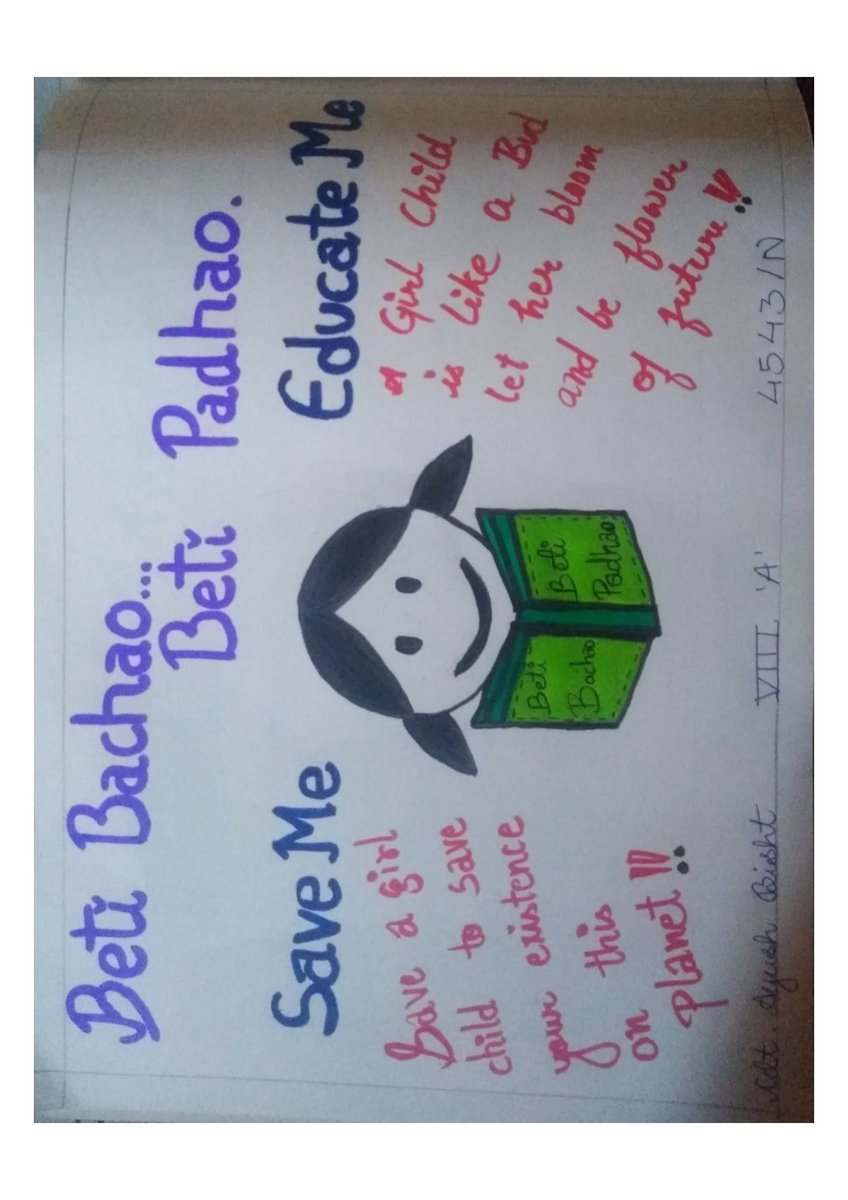 Beti Bachao...
Beti Padhao.
Save Me
Save a girl
child to save
your existence
on this
planet!!
Educate Me
A Girl Child
is like a Bud
let her bloom
and be flower
of future!!
Beti
Bachao
Beti
Padhao
Cdt. Ayush Bisht VIII 'A' 4543/N